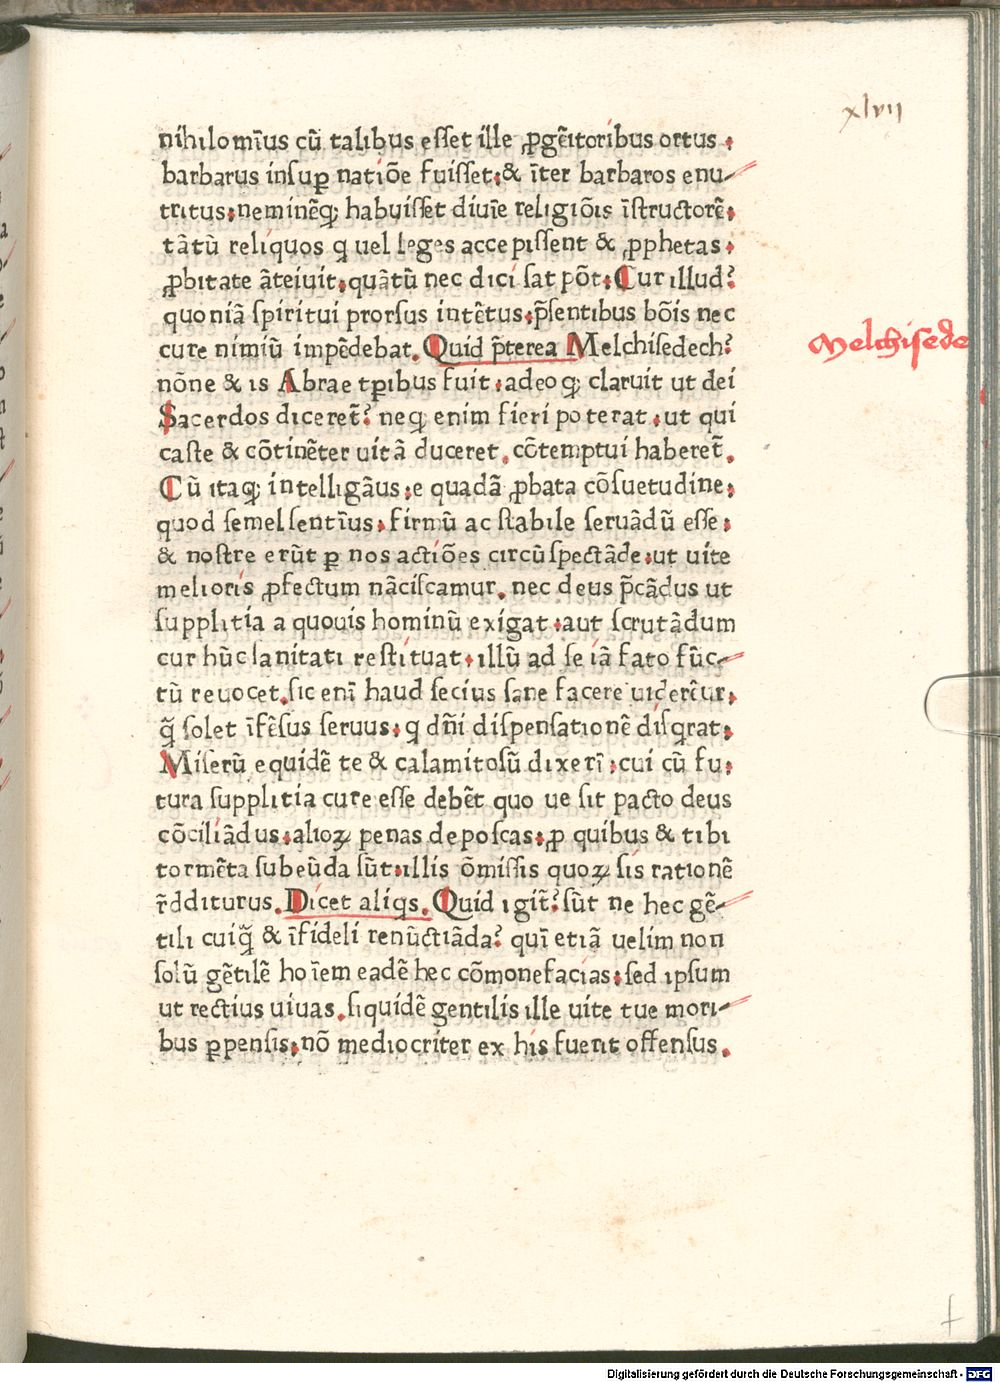 xlvii
nihilomīus cū talibus esset ille ꝓgēitoribus ortus.
barbarus insuꝑ natiōe fuisset. & īter barbaros enu-
tritus. neminēq; habuisset diuīe religiōis īstructorē.
tātū reliquos q uel leges accepissent & ꝓphetas.
ꝓbitate āteiuit. quātū nec dici sat pōt. Cur illud?
quoniā spiritui prorsus intētus. p̄sentibus bōis nec
cure nimiū impēdebat. Quid p̄terea Melchisedech?
Melchisede
nōne & is Abrae tꝑibus fuit. adeo q; claruit ut dei
Sacerdos diceret̄? neq; enim fieri poterat. ut qui
caste & cōtinēter uitā duceret. cōtemptui haberet̄.
Cū itaq; intelligāus. e quadā ꝓbata cōsuetudine.
quod semel sentīus. firmū ac stabile seruādū esse.
& nostre erūt ꝑ nos actiōes circūspectāde. ut uite
melioris ꝓfectum nāciscamur. nec deus p̄cādus ut
supplitia a quouis hominū exigat. aut scrutādum
cur hūc sanitati restituat. illū ad se iā fato fūc-
tū reuocet. sic enī haud secius sane facere uiderētur.
q̄ solet īfēsus seruus. q dn̄i dispensationē disqrat.
Miserū equidē te & calamitosū dixerī. cui cū fu.
tura supplitia cure esse debēt quo ue sit pacto deus
cōciliādus. alioꝝ penas deposcas. ꝓ quibus & tibi
tormēta subeūda sūt. illis ōmissis quoꝝ sis rationē
r̄dditurus. Dicet aliqs. Quid igit̄? sūt ne hec gē-
tili cuiq̄ & īfideli renūctiāda? quī etiā uelim non
solū gētilē hoīem eadē hec cōmonefacias. sed ipsum
ut rectius uiuas. siquidē gentilis ille uite tue mori-
bus ꝑpensis. nō mediocriter ex his fuerit offensus.
Digitalisierung gefördert durch die Deutsche Forschungsgemeinschaft - DFG